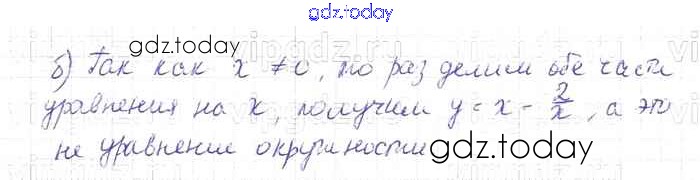 gdz.today
gdz.today
б) Так как x ≠ 0, то разделим обе части
уравнения на x, получим y = x - 2/x, а это
не уравнение окружности
gdz.today